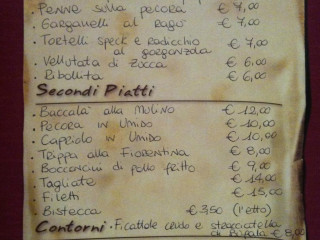 Penne sulla pecora € 7,00
• Garganelli al ragù € 7,00
• Tortelli speck e radicchio
al gorgonzola € 7,00
• Vellutata di zucca € 6,00
• Ribollita € 6,00
Secondi Piatti
• Baccalà alla Mulino € 12,00
• Pecora in Umido € 10,00
• Capriolo in Umido € 10,00
• Trippa alla Fiorentina € 8,00
• Bocconcini di pollo fritto € 9,00
• Tagliate € 14,00
• Filetti € 15,00
• Bistecca € 3,50 (l'etto)
Contorni • Ficattole crudo e stracciatella
di Bufala € 8,00